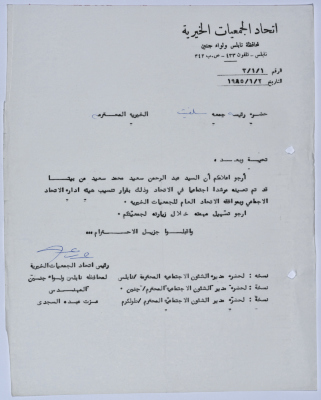 اتحاد الجمعيات الخيرية
محافظة نابلس ولواء جنين
نابلس - تلفون ٤٣٣ - ص.ب ٣٤٢
الرقم ٢/١/١
التاريخ ١٩٨٥/١/٢
حضرة رئيسة جمعية الخيرية المحترمين
تحية وبعد :
أرجو اعلامكم أن السيد عبد الرحمن سعيد محمد سعيد من بيتا
قد تم تعيينه مرشدا اجتماعيا في الاتحاد وذلك بقرار تنسيب هيئة ادارة الاتحاد
الاجماعي وبموافقة الاتحاد العام للجمعيات الخيرية .
ارجو تسهيل مهمته خلال زيارته لجمعيتكم .
واقبلوا جزيل الاحترام ،،،
رئيس اتحاد الجمعيات الخيرية
لمحافظة نابلس ولواء جنين
المهندس
نسخة : لحضرة مدير الشئون الاجتماعية المحترم/نابلس
نسخة : لحضرة مدير الشئون الاجتماعية المحترم/جنين
نسخة : لحضرة مدير الشئون الاجتماعية المحترم/طولكرم